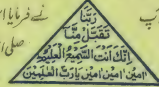 رَبَّنَا
تَقَبَّلْ مِنَّا
اِنَّكَ أَنْتَ السَّمِيْعُ الْعَلِيْمُ
اٰمین اٰمین اٰمین یَارَبَّ الْعٰلَمِیْنَ
نے فرمایا